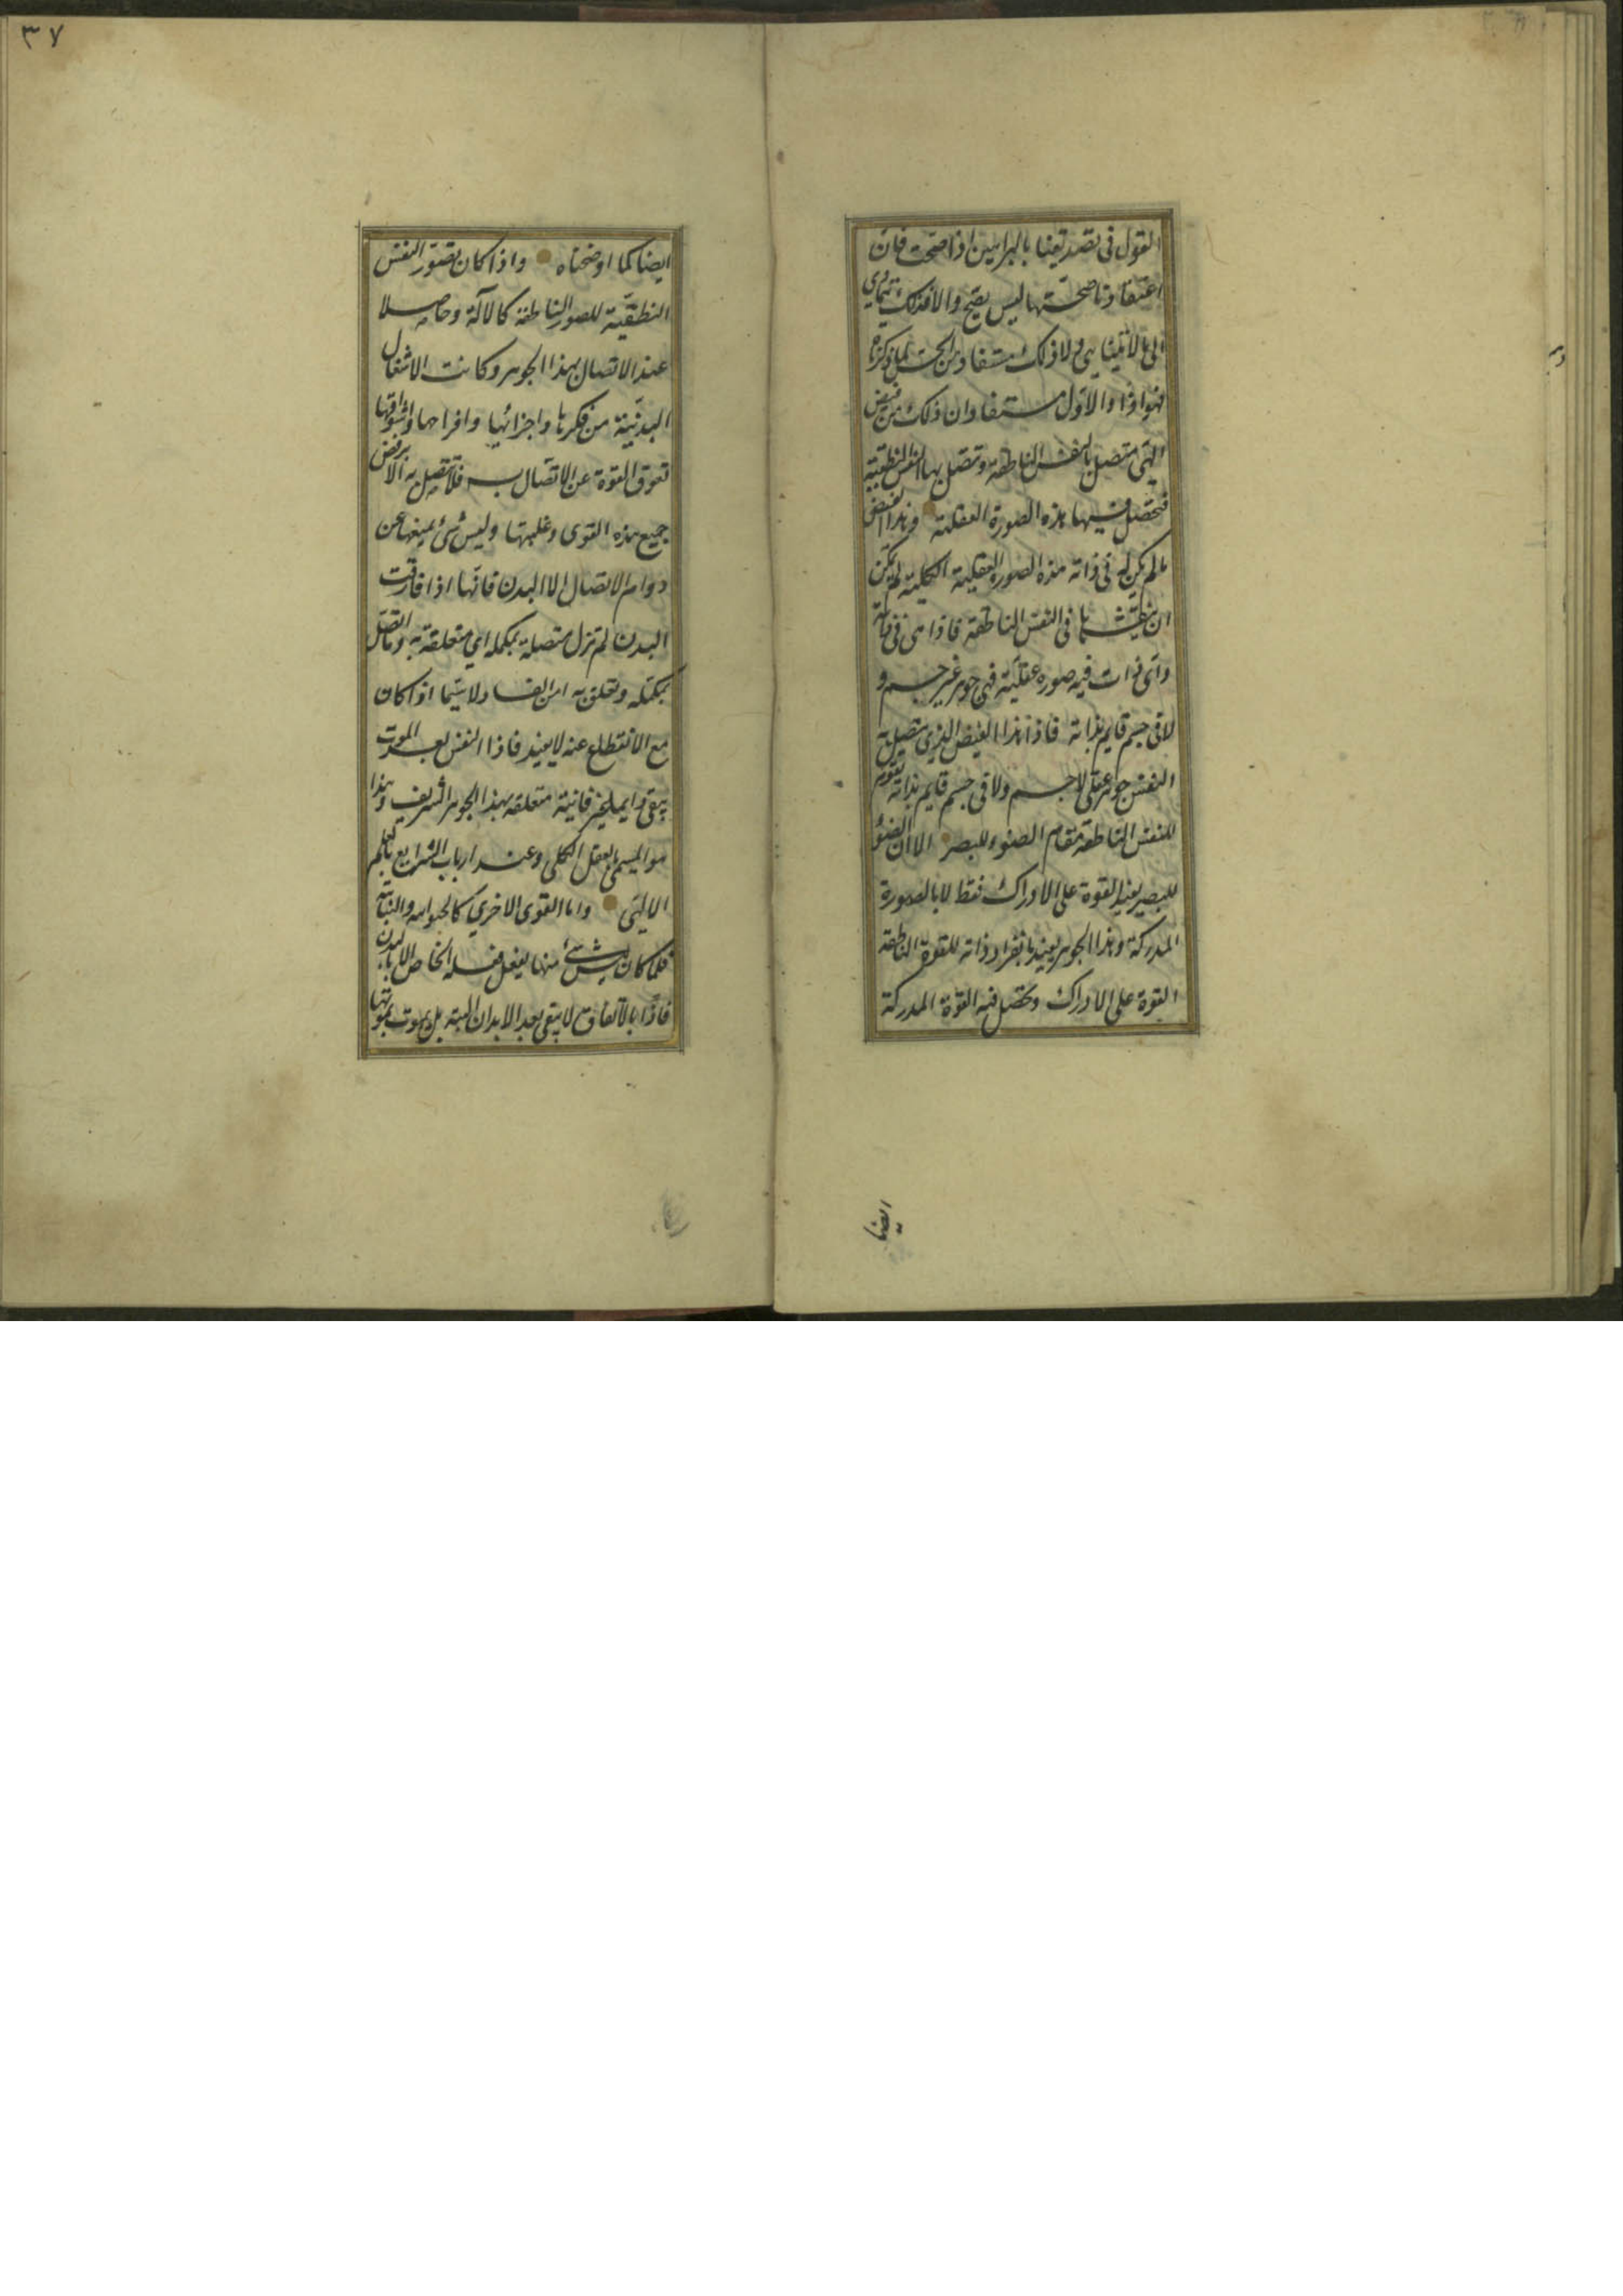 القول فى تصديقنا بالبراهين اذا صحت فان
اعتقادنا صحتها ليس يصح والا فذلك يتمادي
الى ما لا يتناهى ولا ذلك مستفاد من الحس لما ذكرناه
فهو اذا والاول مستفادان ذلك من فيض
الهى متصل بالنفس الناطقة وتتصل بها النفس النطقية
فتحصل فيها هذه الصورة العقلية وهذا الفيض
ما لم يكن له فى ذاته هذه الصورة العقلية الكلية لم يكن
ان ينقشها فى النفس الناطقة فاذا هى فى ذاته
واى ذات فيه صورة عقلية فهى جوهر غير جسم و
لا فى جسم قايم بذاته فاذا هذا الفيض الذي تتصل به
النفس جوهر عقلى لا جسم ولا فى جسم قايم بذاته يقوم
للنفس الناطقة مقام الضوء للبصر الا ان الضوء
للبصر يفيد القوة على الادراك فقط لا بالصورة
المدركة وهذا الجوهر يفيد بانفراد ذاته للقوة الناطقة
القوة على الادراك وتحصل فيه القوة المدركة
ايضا
٣٧
ايضا كما اوضحناه واذا كان تصور النفس
النطقية للصور الناطقة كالآلة وحاصلا
عند الاتصال بهذا الجوهر وكانت الاشغال
البدنية من فكرها واجزائها وافراحها واشواقها
تعوق القوة عن الاتصال به فلا تتصل به الا برفض
جميع هذه القوى وغلبتها وليس شئ يمنعها عن
دوام الاتصال الا البدن فانها اذا فارقت
البدن لم تزل متصلة بمكمله اي متعلقة به وما اتصل
بمكمله وتعلق به امن الفساد لا سيما اذا كان
مع الانقطاع عنه لا يفيد فاذا النفس بعد الموت
يبقى دايما غير فانية متعلقة بهذا الجوهر الشريف وهذا
هو المسمى بالعقل الكلى وعند ارباب الشرايع بالعلم
الالهى واما القوى الاخري كالحيوانيه والنباتية
فلما كان ليس شئ منها يفعل فعله الخاص الا بالبدن
فاذا بالاتفاق لا يبقى بعد الابدان البتة بل يموت بموتها